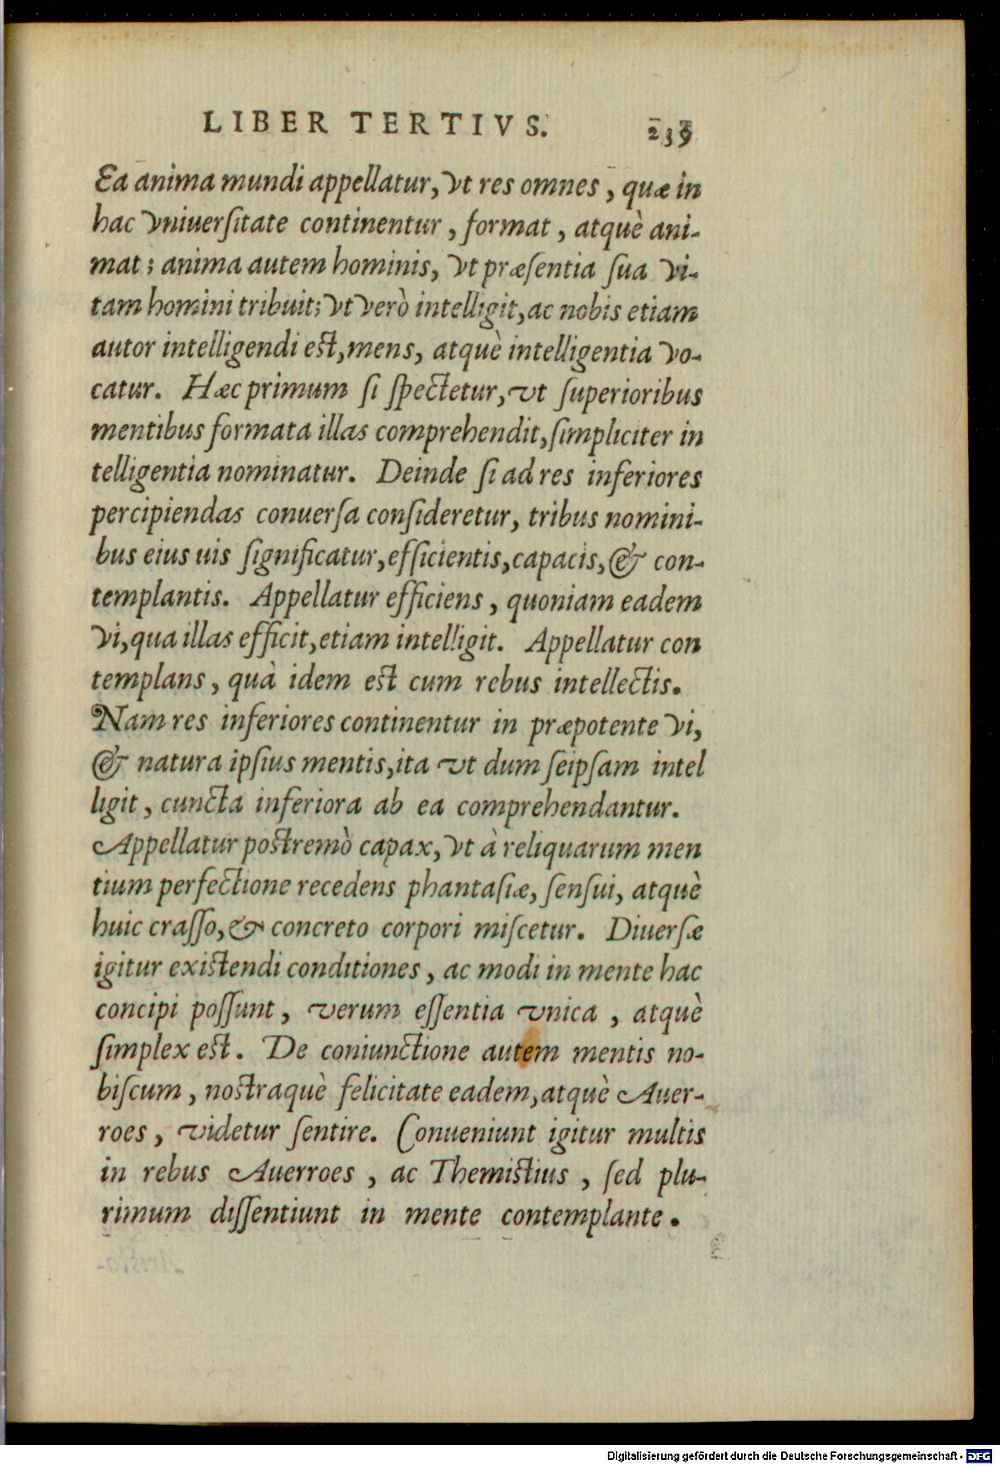 LIBER TERTIVS. 239
Ea anima mundi appellatur, vt res omnes, quæ in
hac vniuerſitate continentur, format, atquè ani-
mat; anima autem hominis, vt præſentia ſua vi-
tam homini tribuit; vt verò intelligit, ac nobis etiam
autor intelligendi est, mens, atquè intelligentia vo-
catur. Hæc primum ſi ſpectetur, vt ſuperioribus
mentibus formata illas comprehendit, ſimpliciter in
telligentia nominatur. Deinde ſi ad res inferiores
percipiendas conuerſa conſideretur, tribus nomini-
bus eius uis ſignificatur, efficientis, capacis, & con-
templantis. Appellatur efficiens, quoniam eadem
vi, qua illas efficit, etiam intelligit. Appellatur con
templans, quà idem est cum rebus intellectis.
Nam res inferiores continentur in præpotente vi,
& natura ipſius mentis, ita vt dum ſeipſam intel
ligit, cuncta inferiora ab ea comprehendantur.
Appellatur postremò capax, vt à reliquarum men
tium perfectione recedens phantaſiæ, ſenſui, atquè
huic craſſo, & concreto corpori miſcetur. Diuerſæ
igitur existendi conditiones, ac modi in mente hac
concipi poſſunt, verum eſſentia vnica, atquè
ſimplex est. De coniunctione autem mentis no-
biſcum, nostraquè felicitate eadem, atquè Auer-
roes, videtur ſentire. Conueniunt igitur multis
in rebus Auerroes, ac Themistius, ſed plu-
rimum diſſentiunt in mente contemplante.
Digitalisierung gefördert durch die Deutsche Forschungsgemeinschaft - DFG